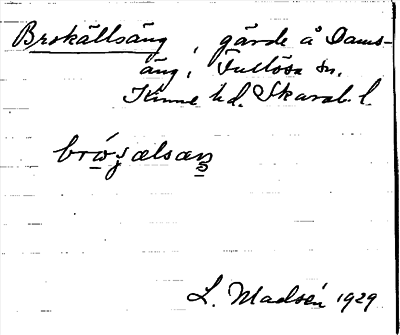 Brokällsäng, gärde å Dams-
äng, Fullösa sn.
Kinne hd. Skarab. l.
brώʒælsæŋ
L. Madsén 1929